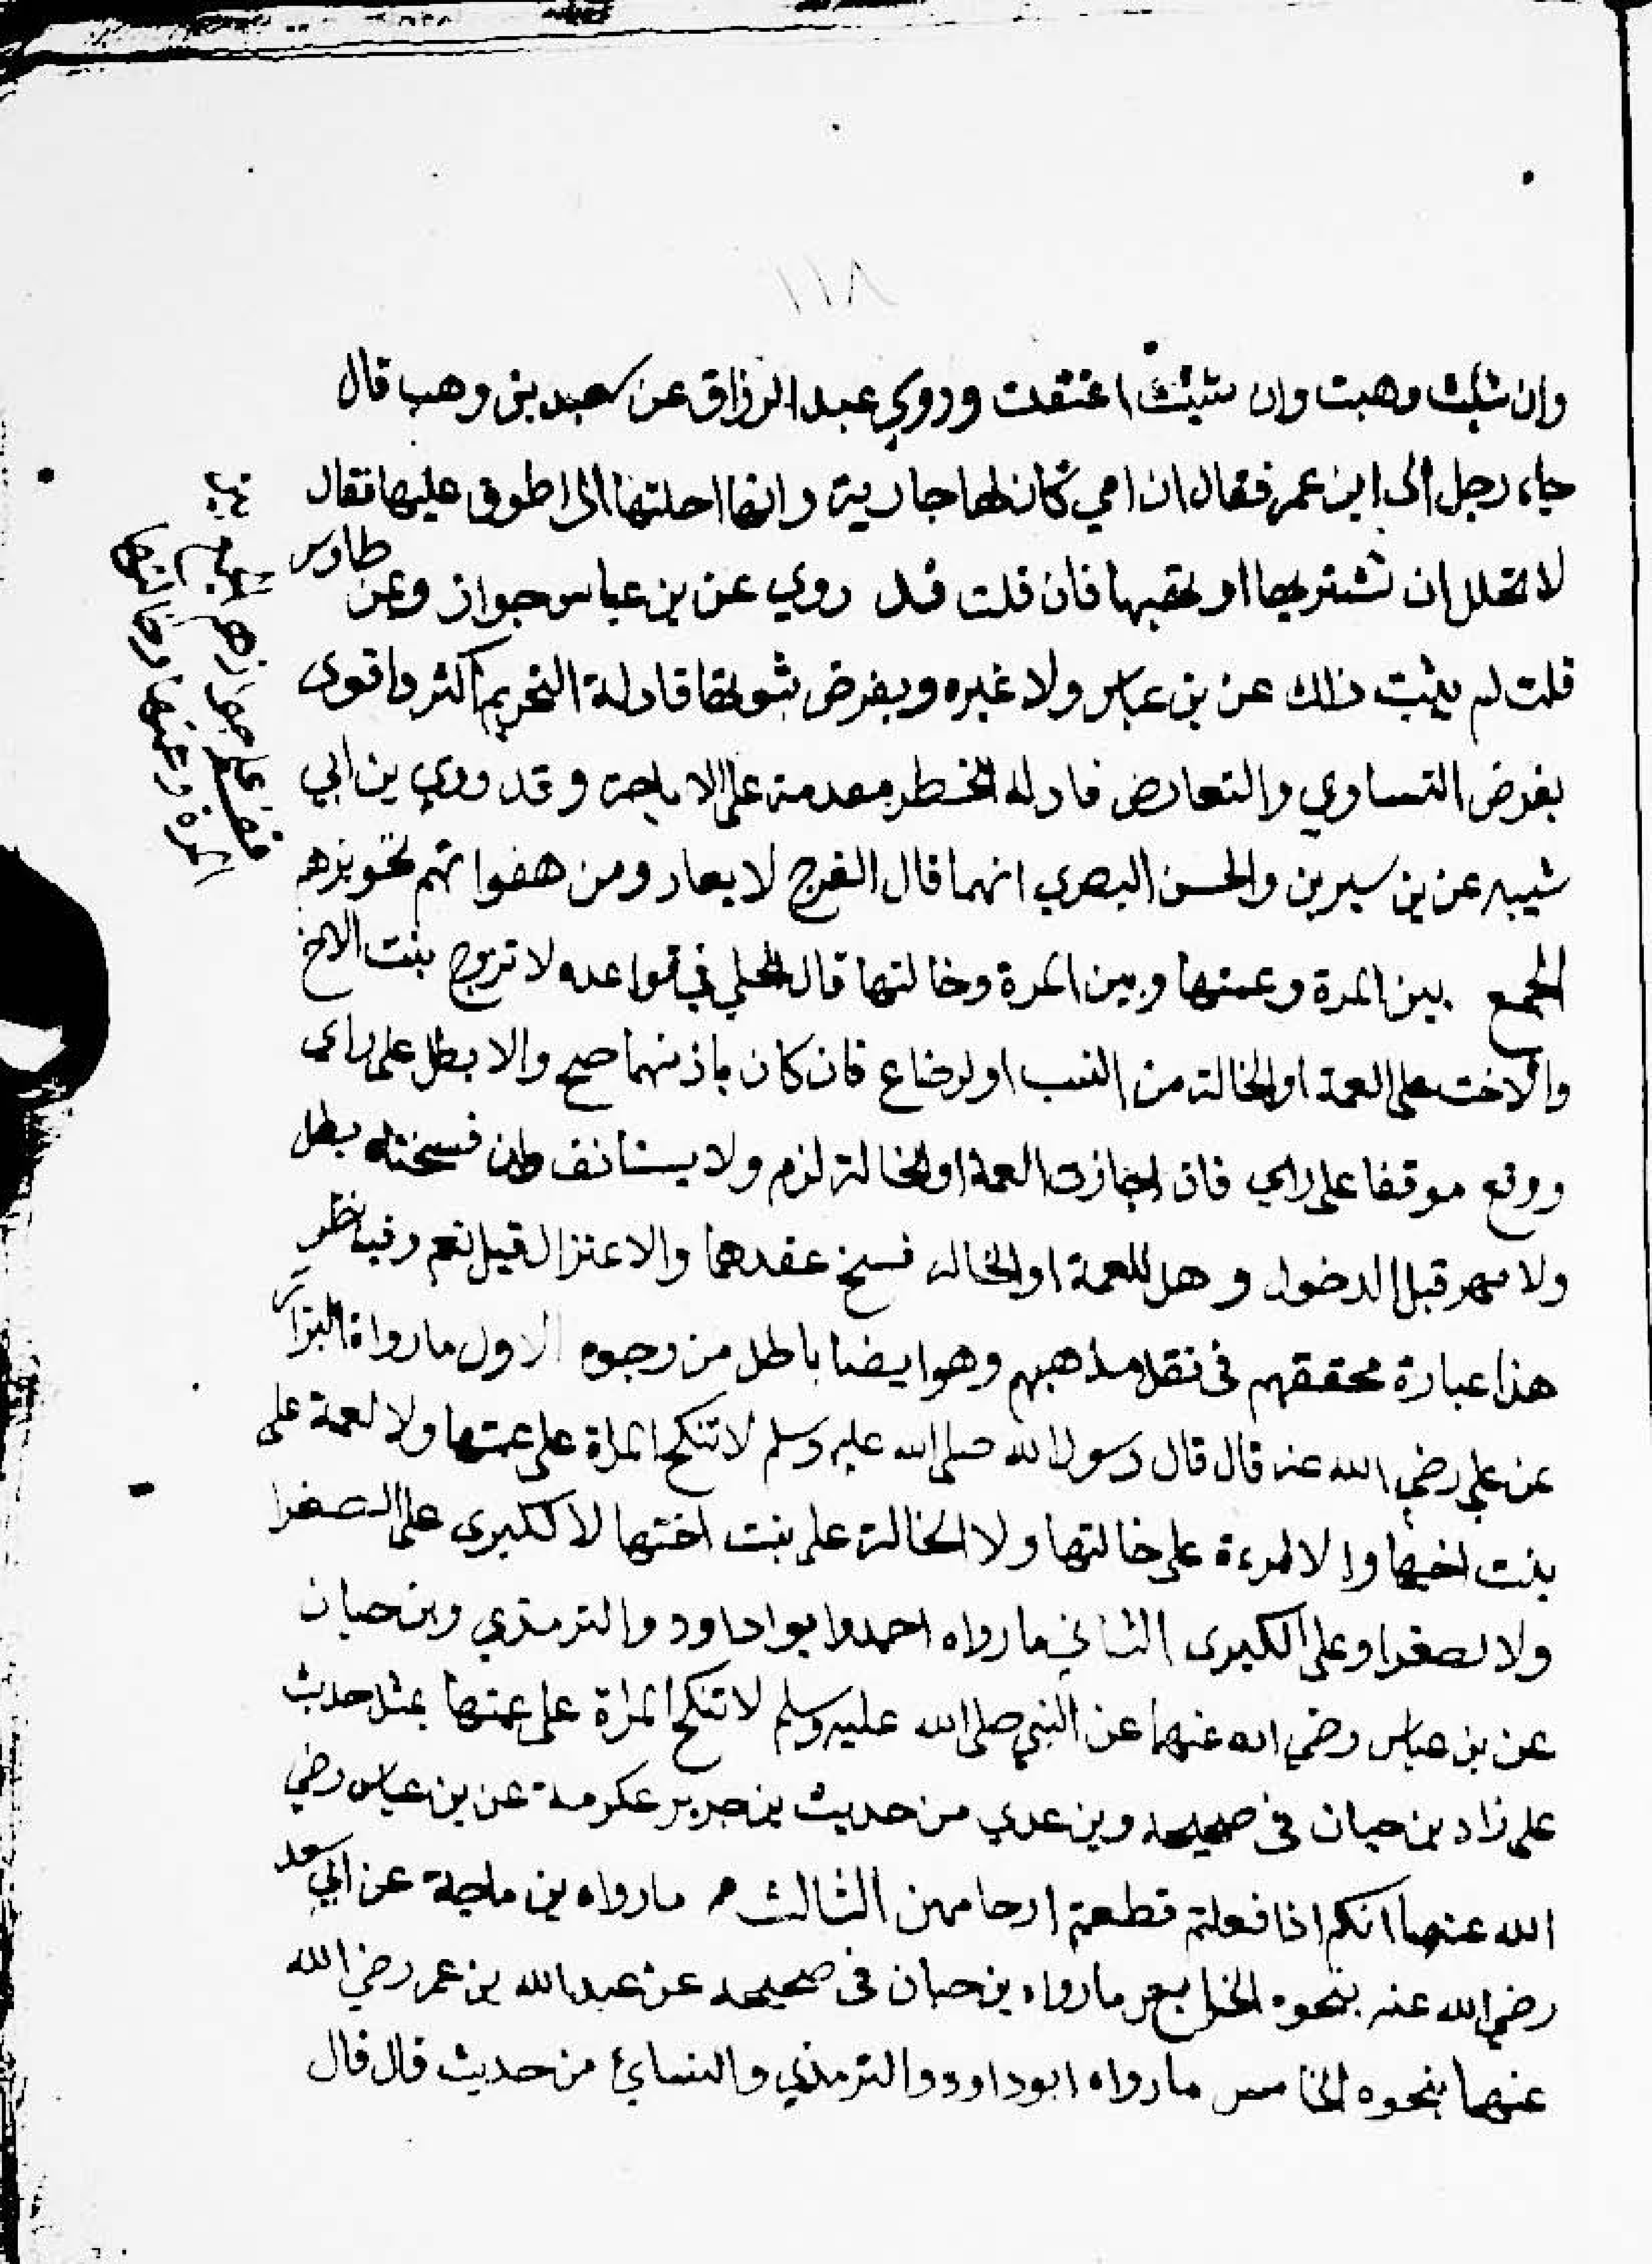 ١١٨
وان شئت وهبت وان شئت اعتقت وروي عبد الرزاق عن سعيد بن وهب قال
جاء رجل الى ابن عمر فقال ان امي كان لها جارية وانها احلتها الى اطوف عليها فقال
لا تحل لك ان تشتريها او تهبها فان قلت قد روي عن بن عباس جواز وعن طاوس
قلت لم يثبت ذلك عن بن عباس ولا غيره وبفرض ثبوتها فادلة التحريم اكثر واقوى
بفرض التساوي والتعارض فادلة الحظر مقدمة على الاباحة وقد روي بن ابي
شيبه عن بن سيرين والحسن البصري انهما قال الفرج لا يعار ومن هفواتهم تجويزهم
الجمع بين المرة وعمتها وبين المرة وخالتها قال الحلي في قواعده لا تزوج بنت الاخ
والاخت على العمة او الخالة من النسب او لرضاع فان كان باذنهما صح والا بطل على راي
ووقع موقفا على راي فان اجازت العمة او الخالة لزم ولا يستانف وان فسخته بطل
ولا مهر قبل الدخول وهل للعمة او الخالة فسخ عقدهما والاعتزال قيل نعم وفيه نظر
هذا عبارة محققهم في نقل مذهبهم وهو ايضا باطل من وجوه الاول ما رواه البزار
عن علي رضي الله عنه قال قال رسول الله صلى الله عليه وسلم لا تنكح المراة على عمتها ولا لعمة على
بنت اخيها والا المرءة على خالتها ولا الخالة على بنت اختها لا لكبرى على الصغرا
ولا لصغرا وعلى الكبرى الثاني ما رواه احمد وابوا داود والترمذي وبن حبان
عن بن عباس رضي الله عنهما عن النبي صلى الله عليه وسلم لا تنكح المراة على عمتها بمثل حديث
علي زاد بن حبان في صحيحه وبن عدي من حديث بن جرير عكرمة عن بن عباس رضي
الله عنهما انكم اذا فعلتم قطعتم ارحامهن الثالث ما رواه بن ماجة عن ابي سعد
رضي الله عنه بنحوه الرابع ما رواه بن حبان في صحيحه عن عبد الله بن عمر رضي الله
عنهما بنحوه الخامس ما رواه ابو داود والترمذي والنسائ من حديث قال قال
قف على جوازهم الجمع بين
المرة وعمتها وخالتها